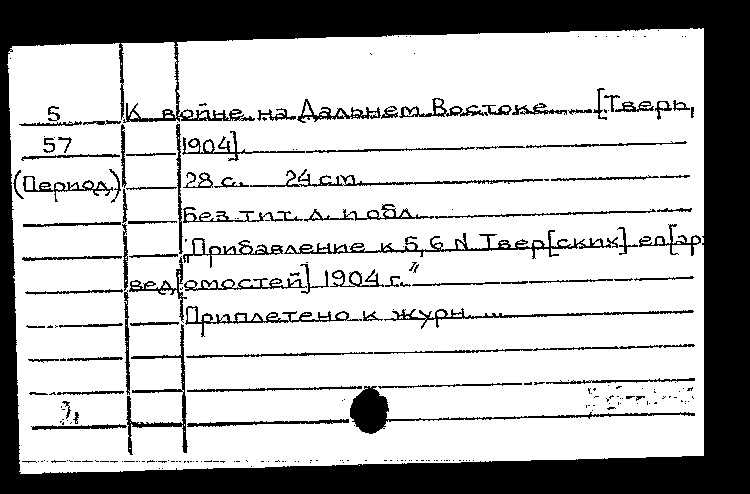 5 К войне на Дальнем Востоке [Тверь,
57 1904].
(Период.) 28 с. 24 см.
Без тит. л. и обл.
„Прибавление к 5,6 N Твер[ских] еп[арх
вед[омостей] 1904 г.“
Приплетено к журн. ...